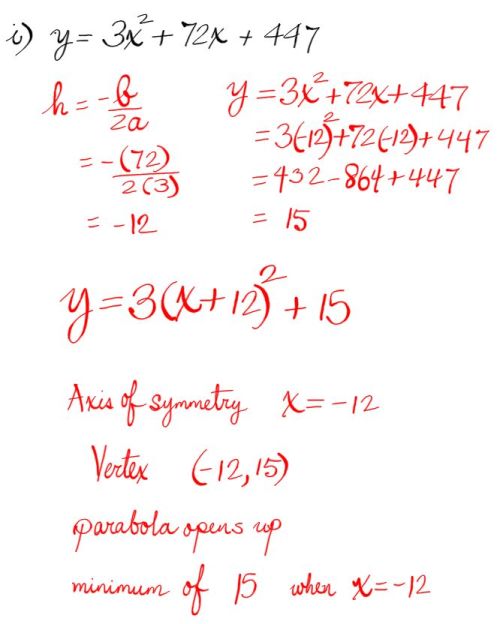 i) y = 3x² + 72x + 447
h = -b/2a
= -(72)/2(3)
= -12
y = 3x² + 72x + 447
= 3(-12)² + 72(-12) + 447
= 432 - 864 + 447
= 15
y = 3(x + 12)² + 15
Axis of symmetry x = -12
Vertex (-12, 15)
parabola opens up
minimum of 15 when x = -12